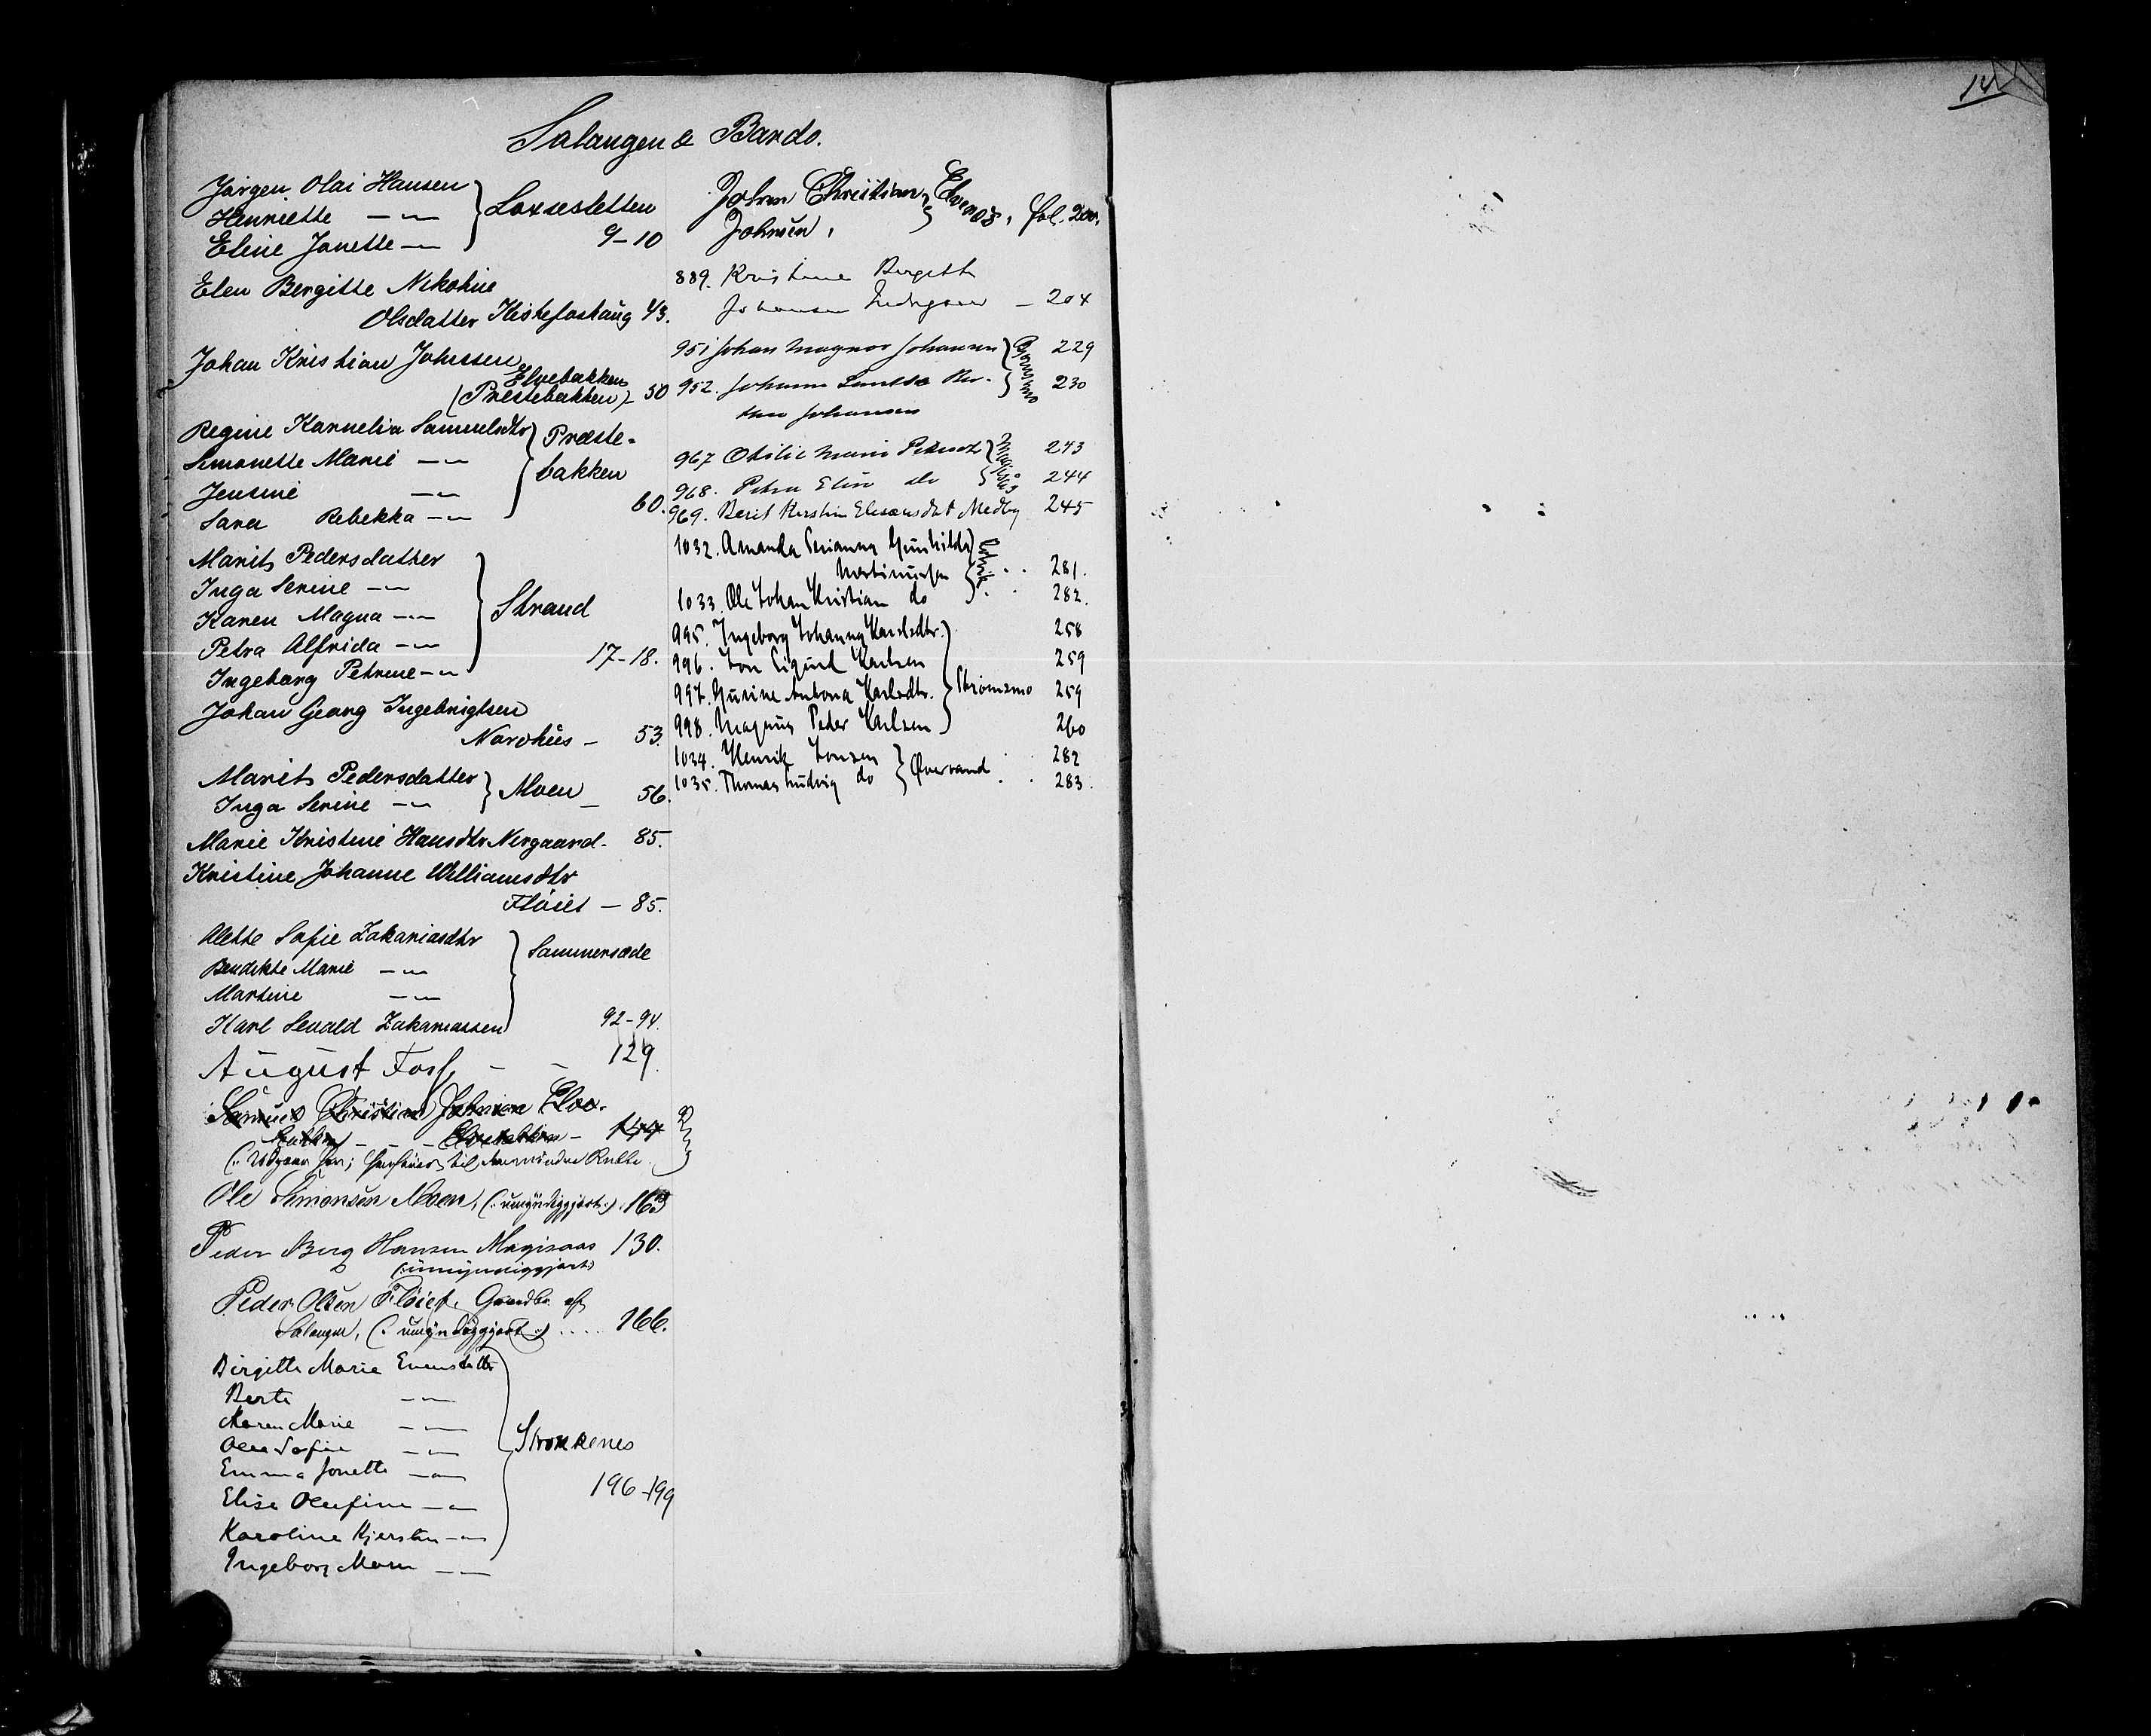 14
Salangen & Bardo.
Jørgen Olai Hansen
Henriette —"—
Eline Janette —"—
Laxsesletten
9-10
Elen Bergitte Nikoline
Olsdatter Kistefoshaug 43.
Johan Kristian Johnsen
Elvebakken
(Prestebakken) - 50
Regine Karnelia Samuelsdtr
Simonette Marie —"—
Jensine —"—
Sara Rebekka —"—
Præste-
bakken
60.
Marit Pedersdatter
Inga Serine —"—
Karen Magna —"—
Petra Alfrida —"—
Ingebarg Petrine —"—
Strand
17-18.
Johan Georg Ingebrigtsen
Nordhus — 53.
Marit Pedersdatter
Inga Serine —"—
Moen — 56.
Marie Kristine Hansdtr Nergaard - 85.
Kristine Johanne Williamsdtr
Fløiet — 85.
Alette Sofie Zakariasdtr
Bendikte Marie —"—
Martine —"—
Karl Sevald Zakariassen
Sammersæde
92-94.
August Foss — — 129.
Samuel Christian Johnsen
Elvebakken — 144
(: Udgaar her;
Ole Simonsen Moen, (: umyndiggjort :) . 163
Peder Berg Hansen Magisaas 130.
(: umyndiggjort)
Peder Olsen Fløiet, Gaardbr. af
Salangen, (: umyndiggjort :) ..... 166.
Birgitte Marie Evensdatter
Berte —"—
Maren Marie —"—
Olea Sofie —"—
Emma Jonette —"—
Elise Olufine —"—
Karoline Kjersten —"—
Ingeborg Maren — —
196-199
Johan Christian
Johnsen,
Elvenes, fol. 200.
889. Kristine Bergitte
Johansen — 204
951 Johan Magnor Johansen 229
952. Johanne 230
Johansen
967 Otilie Marie Pedersdtr 243
968. Petra Eline do 244
969. Berit Kirstine Eliseusdat Medby 245
1032. Amanda Gunhilda
Martinusen . . 281.
1033. Ole Johan Kristian do . . 282.
995. Ingeborg Johanna Karlsdtr. 258
996. Jon Sigurd Karlsen 259
997. Gurine Antona Karlsdtr. Strømsmo 259
998. Magnus Peder Karlsen 260
1034. Henrik Jonsen . 282
1035. Thomas Ludvig do Øvervand . . 283.